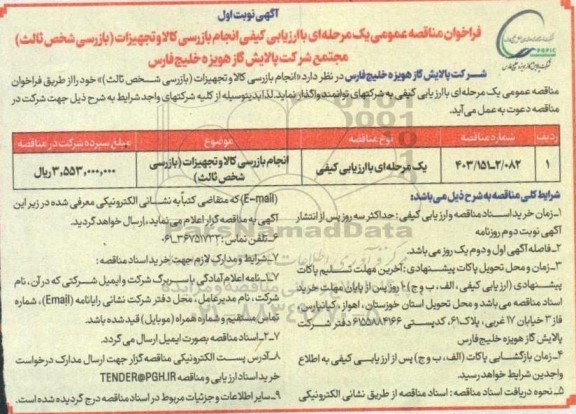 آگهی نوبت اول
فراخوان مناقصه عمومی یک مرحله‌ای با ارزیابی کیفی انجام بازرسی کالا و تجهیزات (بازرسی شخص ثالث)
مجتمع شرکت پالایش گاز هویزه خلیج فارس
PGPIC
شرکت پالایش گاز هویزه خلیج فارس در نظر دارد «انجام بازرسی کالا و تجهیزات (بازرسی شخص ثالث)» خود را از طریق فراخوان
مناقصه عمومی یک مرحله‌ای با ارزیابی کیفی به شرکتهای توانمند واگذار نماید. لذا بدینوسیله از کلیه شرکتهای واجد شرایط به شرح ذیل جهت شرکت در
مناقصه دعوت به عمل می‌آید.
ردیف شماره مناقصه نوع مناقصه موضوع مبلغ سپرده شرکت در مناقصه
۱ ۴۰۳/۱۵۱_۲/۰۸۲ یک مرحله‌ای با ارزیابی کیفی انجام بازرسی کالا و تجهیزات (بازرسی شخص ثالث) ۳,۵۵۳,۰۰۰,۰۰۰ ریال
شرایط کلی مناقصه به شرح ذیل می‌باشد:
۱_زمان خرید اسناد مناقصه و ارزیابی کیفی: حداکثر سه روز پس از انتشار
آگهی نوبت دوم روزنامه
۲_فاصله آگهی اول و دوم یک روز می‌باشد.
۳_زمان و محل تحویل پاکات پیشنهادی: آخرین مهلت تسلیم پاکات
پیشنهادی (ارزیابی کیفی، الف، ب و ج) ۱۰ روز پس از پایان مهلت خرید
اسناد مناقصه می‌باشد و محل تحویل استان خوزستان، اهواز، کیانپارس،
فاز ۳ خیابان ۱۷ غربی، پلاک ۶۱، کدپستی ۶۱۵۵۸۱۴۱۶۶ دفتر شرکت
پالایش گاز هویزه خلیج فارس
۴_زمان بازگشایی پاکات (الف، ب و ج) پس از ارزیابی کیفی به اطلاع
واجدین شرایط خواهد رسید.
۵_نحوه دریافت اسناد مناقصه: اسناد مناقصه از طریق نشانی الکترونیکی
(E-mail) که متقاضی کتباً به نشانی الکترونیکی معرفی شده در زیر این
آگهی به مناقصه گزار اعلام می‌نماید، ارسال خواهد گردید.
۶_تلفن تماس: ۳۶۷۵۱۷۳۳-۰۶۱
۷_شرایط و مدارک لازم جهت خرید اسناد مناقصه:
۷_۱_نامه اعلام آمادگی با سربرگ شرکت و ایمیل شرکتی که در آن، نام
شرکت، نام مدیرعامل، محل دفتر شرکت نشانی رایانامه (Email)، شماره
تماس مستقیم و شماره همراه (موبایل) قید شده باشد.
۷_۲_اسناد مناقصه بصورت ایمیل ارسال می گردد.
۸_آدرس پست الکترونیکی مناقصه گزار جهت ارسال مدارک درخواست
خرید اسناد ارزیابی و مناقصه TENDER@PGH.IR
۹_سایر اطلاعات و جزئیات مربوط در اسناد مناقصه درج گردیده شده است.
ParsNamadData